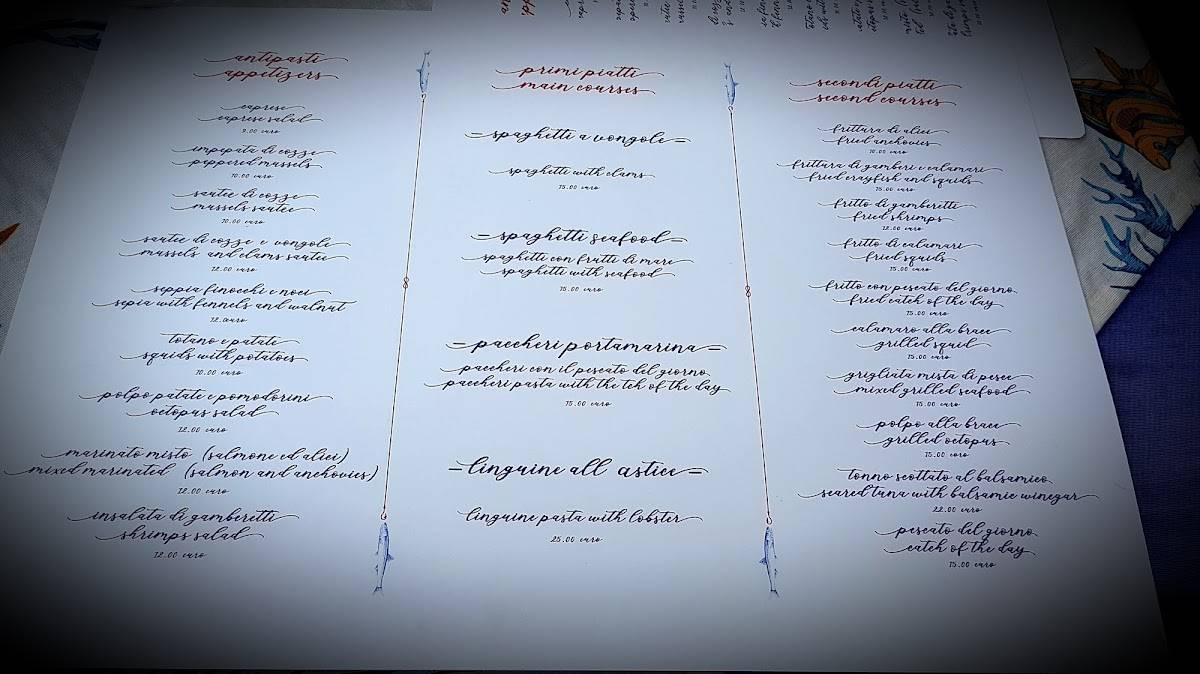 antipasti
appetizers
caprese
caprese salad
9.00 euro
impepata di cozze
peppered mussels
10.00 euro
sautee di cozze
mussels sautee
10.00 euro
sautee di cozze e vongole
mussels and clams sautee
12.00 euro
seppia finocchi e noci
sepia with fennels and walnut
12.00 euro
totano e patate
squids with potatoes
10.00 euro
polpo patate e pomodorini
octopus salad
12.00 euro
marinato misto (salmone ed alici)
mixed marinated (salmon and anchovies)
12.00 euro
insalata di gamberetti
shrimps salad
12.00 euro
primi piatti
main courses
spaghetti a vongole
spaghetti with clams
15.00 euro
spaghetti seafood
spaghetti con frutti di mare
spaghetti with seafood
15.00 euro
paccheri portamarina
paccheri con il pescato del giorno
paccheri pasta with the tch of the day
15.00 euro
linguine all astice
linguine pasta with lobster
25.00 euro
secondi piatti
second courses
frittura di alici
fried anchovies
10.00 euro
frittura di gamberi e calamari
fried crayfish and squids
15.00 euro
fritto di gamberetti
fried shrimps
12.00 euro
fritto di calamari
fried squids
15.00 euro
fritto con pescato del giorno
fried catch of the day
15.00 euro
calamaro alla brace
grilled squid
15.00 euro
grigliata mista di pesce
mixed grilled seafood
15.00 euro
polpo alla brace
grilled octopus
15.00 euro
tonno scottato al balsamico
seared tuna with balsamic winegar
22.00 euro
pescato del giorno
catch of the day
15.00 euro